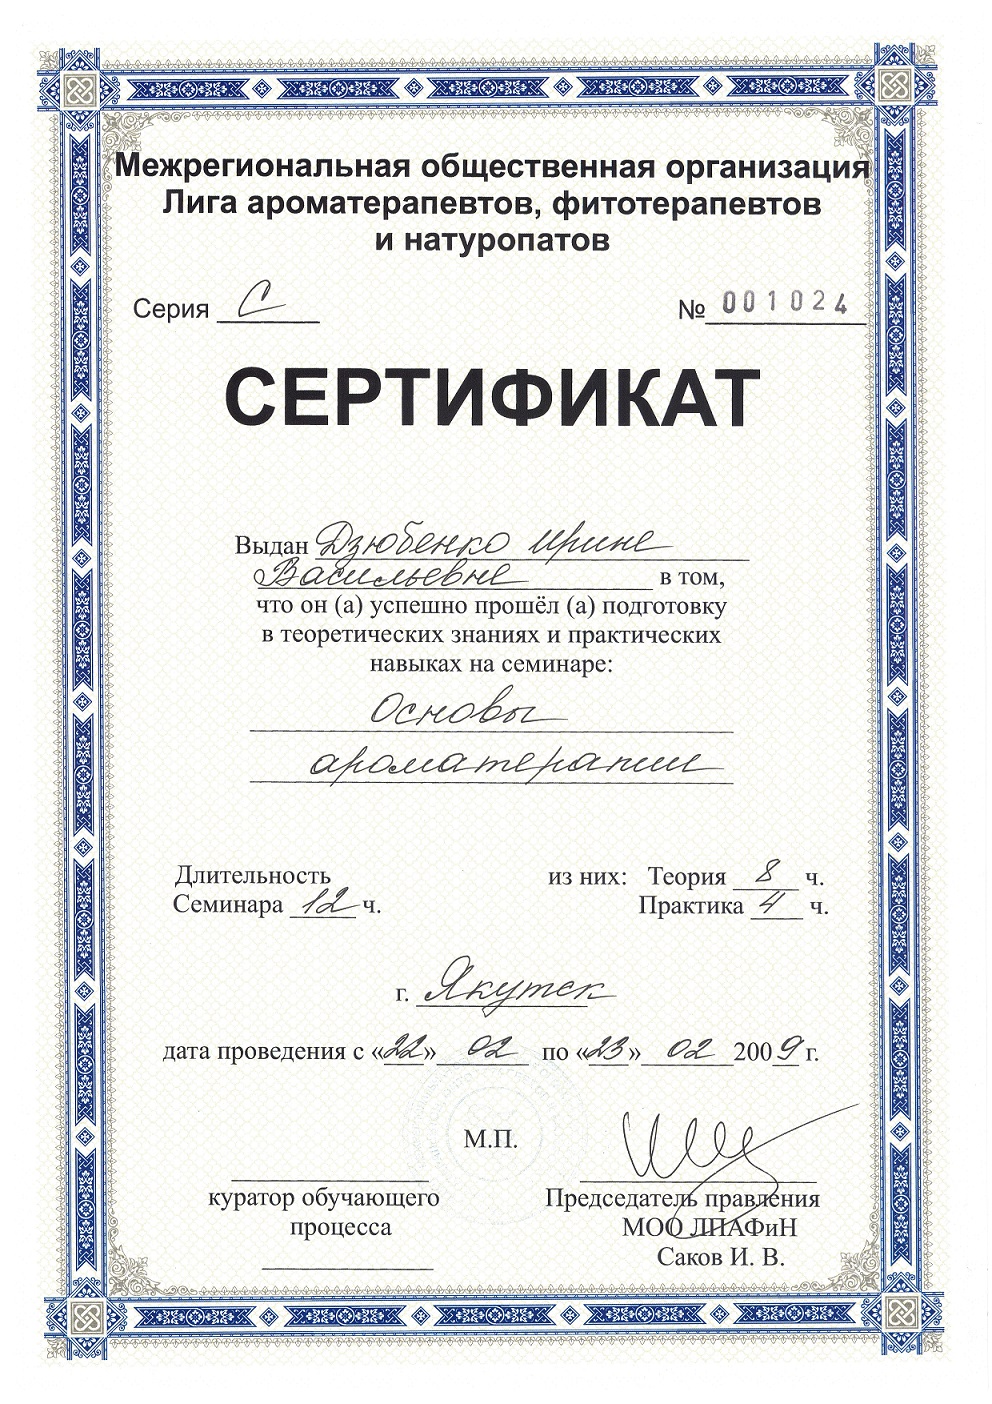 Межрегиональная общественная организация
Лига ароматерапевтов, фитотерапевтов
и натуропатов
Серия С № 001024
СЕРТИФИКАТ
Выдан Дзюбенко Ирине
Васильевне в том,
что он (а) успешно прошёл (а) подготовку
в теоретических знаниях и практических
навыках на семинаре:
Основы
ароматерапии
Длительность из них: Теория 8 ч.
Семинара 12 ч. Практика 4 ч.
г. Якутск
дата проведения с «22» 02 по «23» 02 2009 г.
М.П.
куратор обучающего Председатель правления
процесса МОО ЛПАФиН
Саков И. В.